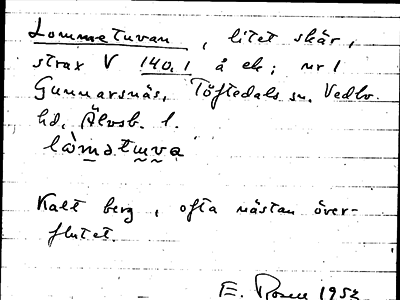 Lommetuvan, litet skär,
strax V 140.1 å ek; nr 1
Gunnarsnäs, Töftedals sn. Vedbo
hd, Älvsb. l.
làmətuva
Kalt berg, ofta nästan över-
flutet.
E. Rosen 1952